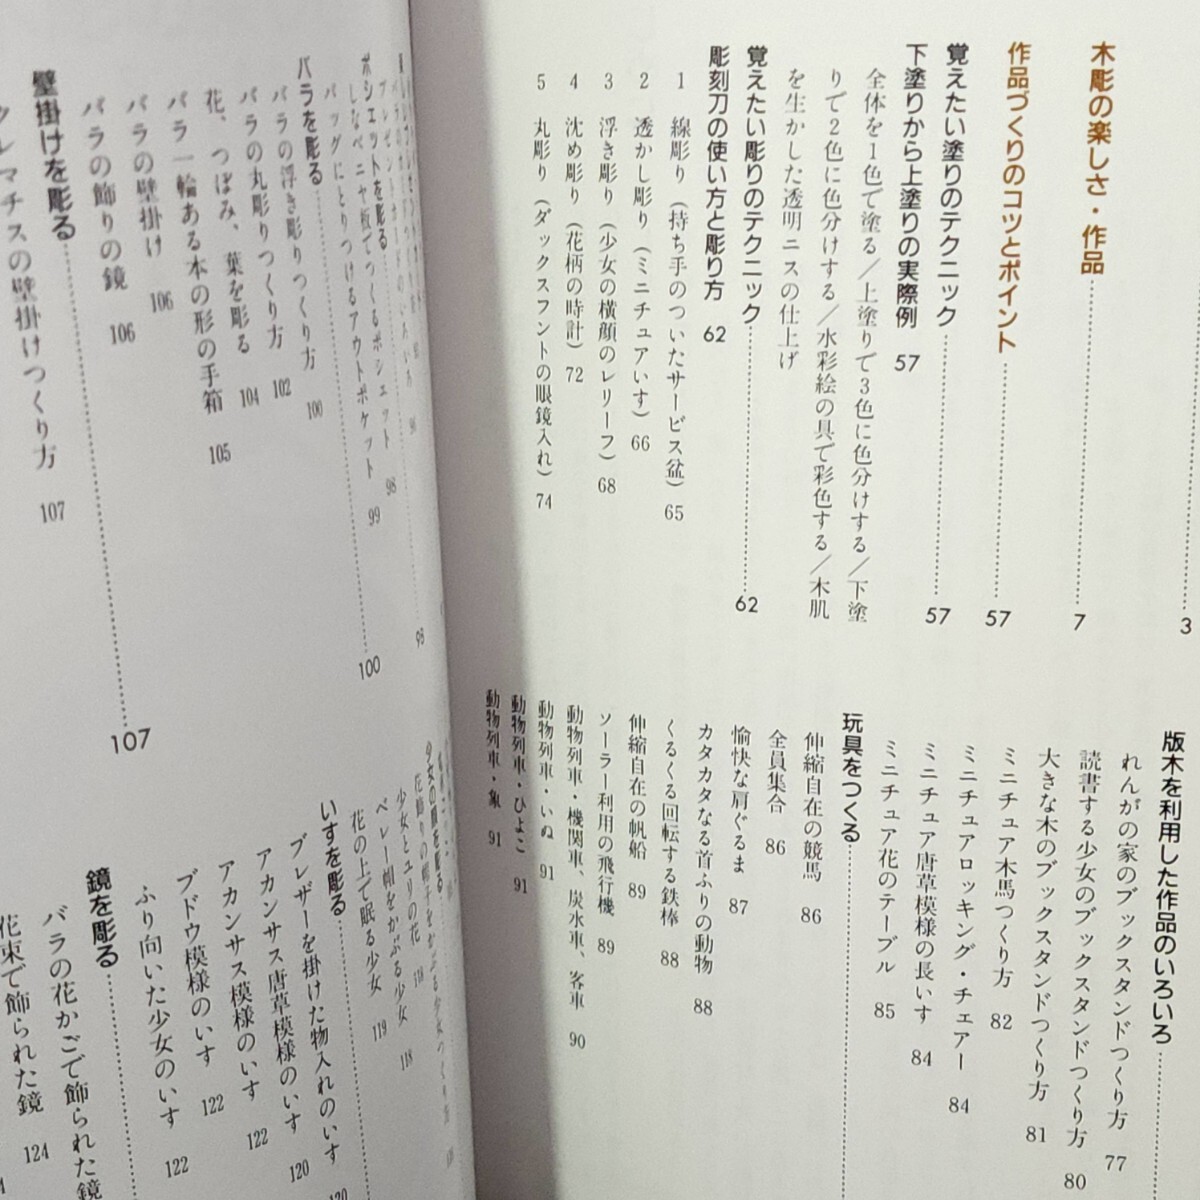 3
木彫の楽しさ・作品 7
作品づくりのコツとポイント 57
覚えたい塗りのテクニック 57
下塗りから上塗りの実際例 57
全体を1色で塗る/上塗りで3色に色分けする/下塗
りで2色に色分けする/水彩絵の具で彩色する/木肌
を生かした透明ニスの仕上げ
覚えたい彫りのテクニック 62
彫刻刀の使い方と彫り方 62
1 線彫り(持ち手のついたサービス盆) 65
2 透かし彫り(ミニチュアいす) 66
3 浮き彫り(少女の横顔のレリーフ) 68
4 沈め彫り(花柄の時計) 72
5 丸彫り(ダックスフントの眼鏡入れ) 74
版木を利用した作品のいろいろ
れんがの家のブックスタンドつくり方 77
読書する少女のブックスタンドつくり方 80
大きな木のブックスタンドつくり方 81
ミニチュア木馬つくり方 82
ミニチュアロッキング・チェアー 84
ミニチュア唐草模様の長いす 84
ミニチュア花のテーブル 85
玩具をつくる
伸縮自在の競馬 86
全員集合 86
愉快な肩ぐるま 87
カタカタなる首ふりの動物 88
くるくる回転する鉄棒 88
伸縮自在の帆船 89
ソーラー利用の飛行機 89
動物列車・機関車、炭水車、客車 90
動物列車・いぬ 91
動物列車・ひよこ 91
動物列車・象 91
ポシェットを彫る 98
しなベニヤ板でつくるポシェット 98
バッグにとりつけるアウトポケット 99
バラを彫る 100
バラの浮き彫りつくり方 100
バラの丸彫りつくり方 102
花、つぼみ、葉を彫る 104
バラ一輪ある本の形の手箱 105
バラの壁掛け 106
バラの飾りの鏡 106
壁掛けを彫る 107
クレマチスの壁掛けつくり方 107
少女の顔を彫る
花飾りの帽子をかぶる少女つくり方
少女とユリの花 118
ベレー帽をかぶる少女 118
花の上で眠る少女 119
いすを彫る 120
ブレザーを掛けた物入れのいす 120
アカンサス唐草模様のいす 122
アカンサス模様のいす 122
ブドウ模様のいす 122
ふり向いた少女のいす 122
鏡を彫る
バラの花かごで飾られた鏡 124
花束で飾られた鏡